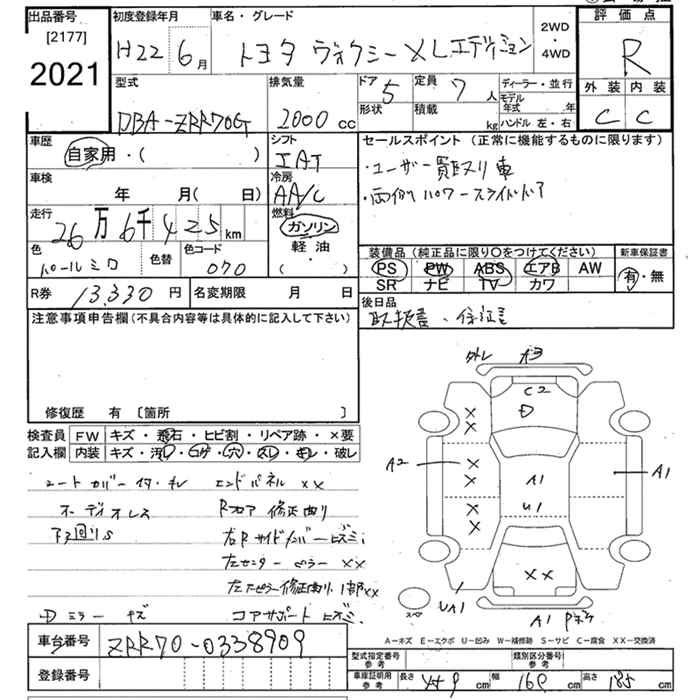 出品番号 初度登録年月 車名・グレード 2WD・4WD 評価点
[2177]
2021 H22 6月 トヨタ ヴォクシー XLエディション R
型式 排気量 ドア 5 定員 7人 ディーラー・並行 外装 内装
形状 積載 kg モデル年式 年
DBA-ZRR70G 2000cc ハンドル 左・右 C C
車歴 シフト セールスポイント (正常に機能するものに限ります)
自家用・( ) IAT ・ユーザー買取り車
車検 冷房 ・両側パワースライドドア
年 月( 日) AA/C
走行 燃料
26万6千425km ガソリン
色 色替 色コード 軽油 装備品 (純正品に限り〇をつけてください) 新車保証書
パールシロ 070 ・( ) PS PW ABS エアB AW 有・無
SR ナビ TV カワ
R券 13,330円 名変期限 月 日 後日品
取扱書・保証書
注意事項申告欄 (不具合内容等は具体的に記入して下さい)
修復歴 有 [箇所 ]
検査員 FW キズ・飛石・ヒビ割・リペア跡・×要
記入欄 内装 キズ・汚レ・コゲ・穴・スレ・キレ・破レ
外レ A3
C2
A2 A1 A1
U1
XX
UA1 A1 Pキズ
スペ
シートカバー付・キレ エンドパネル XX
オーディオレス Rフロア 修正曲り
下回りS 右Rサイドメンバーヒズミ
左センターピラーXX
Dミラーキズ コアサポートヒズミ
A=キズ E=エクボ U=凹み W=補修跡 S=サビ C=腐食 XX=交換済
車台番号 ZRR70-0338909
型式指定番号 参考 類別区分番号 参考
登録番号 車庫証明用 参考 長さ 459cm 幅 169cm 高さ 185cm